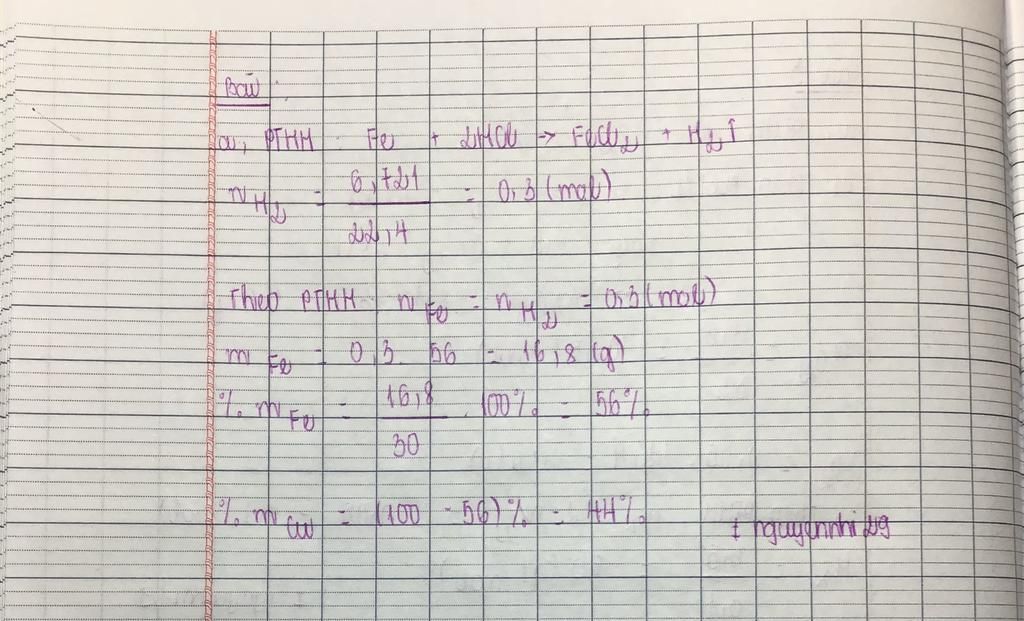 Bài:
a, PTHH: Fe + 2HCl → FeCl2 + H2↑
nH2 = 6,721 / 22,4 = 0,3 (mol)
Theo PTHH nFe = nH2 = 0,3 (mol)
mFe = 0,3 . 56 = 16,8 (g)
% mFe = 16,8 / 30 . 100% = 56%
% mCu = (100 - 56)% = 44%
nguyennhi29